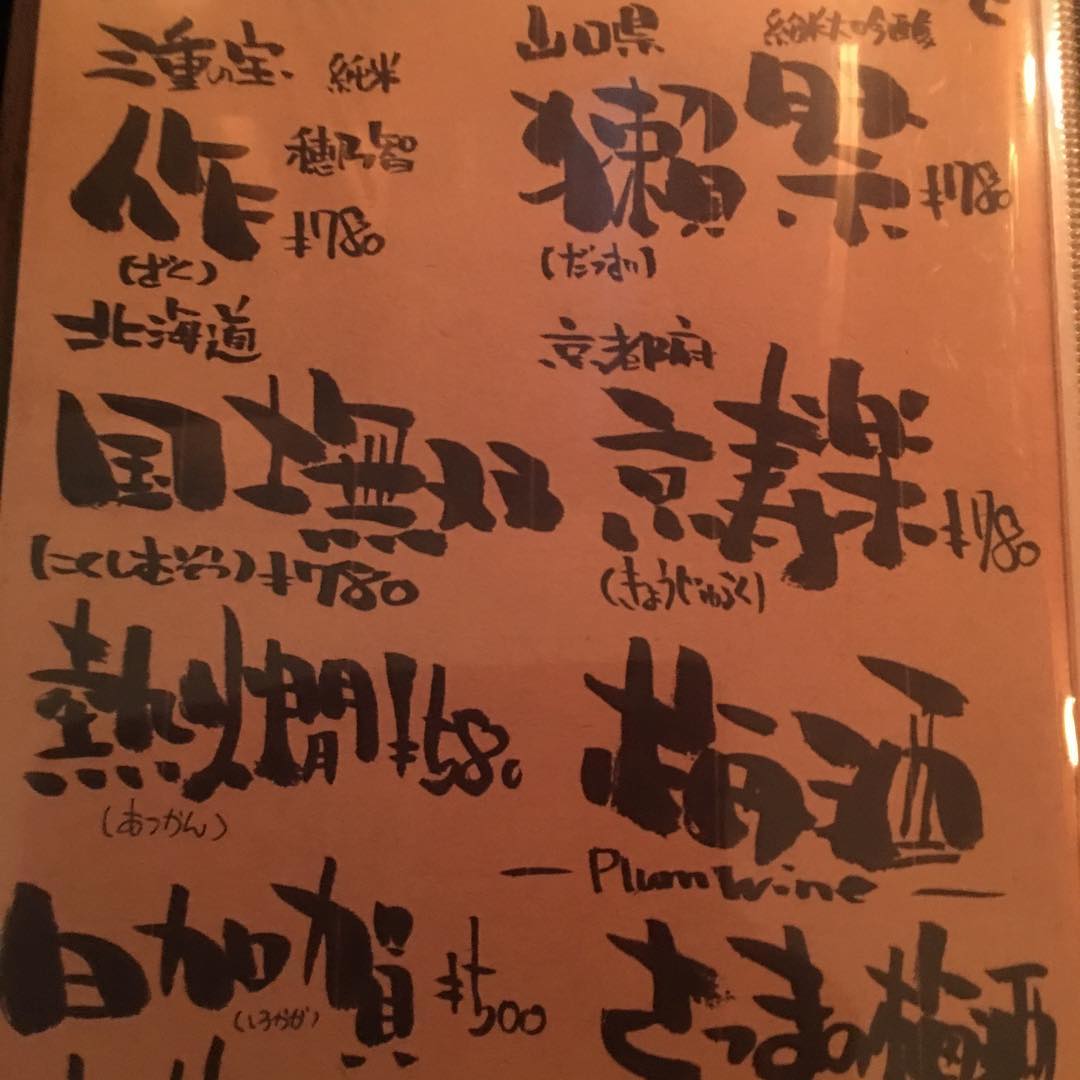 三重の宝 純米
作 穂乃智 ¥780
(ざく)
山口県 純米大吟醸
獺祭 ¥780
(だっさい)
北海道
国士無双
(こくしむそう) ¥780
京都府
京寿楽 ¥780
(きょうじゅらく)
熱燗 ¥580
(あつかん)
梅酒
— Plum wine —
白加賀 ¥500
(しらかが)
さつまの梅酒